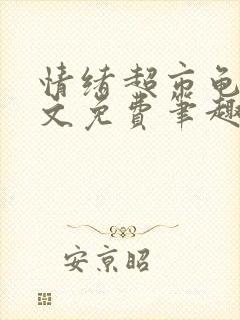 情绪超市龟
文免费笔趣
安京昭